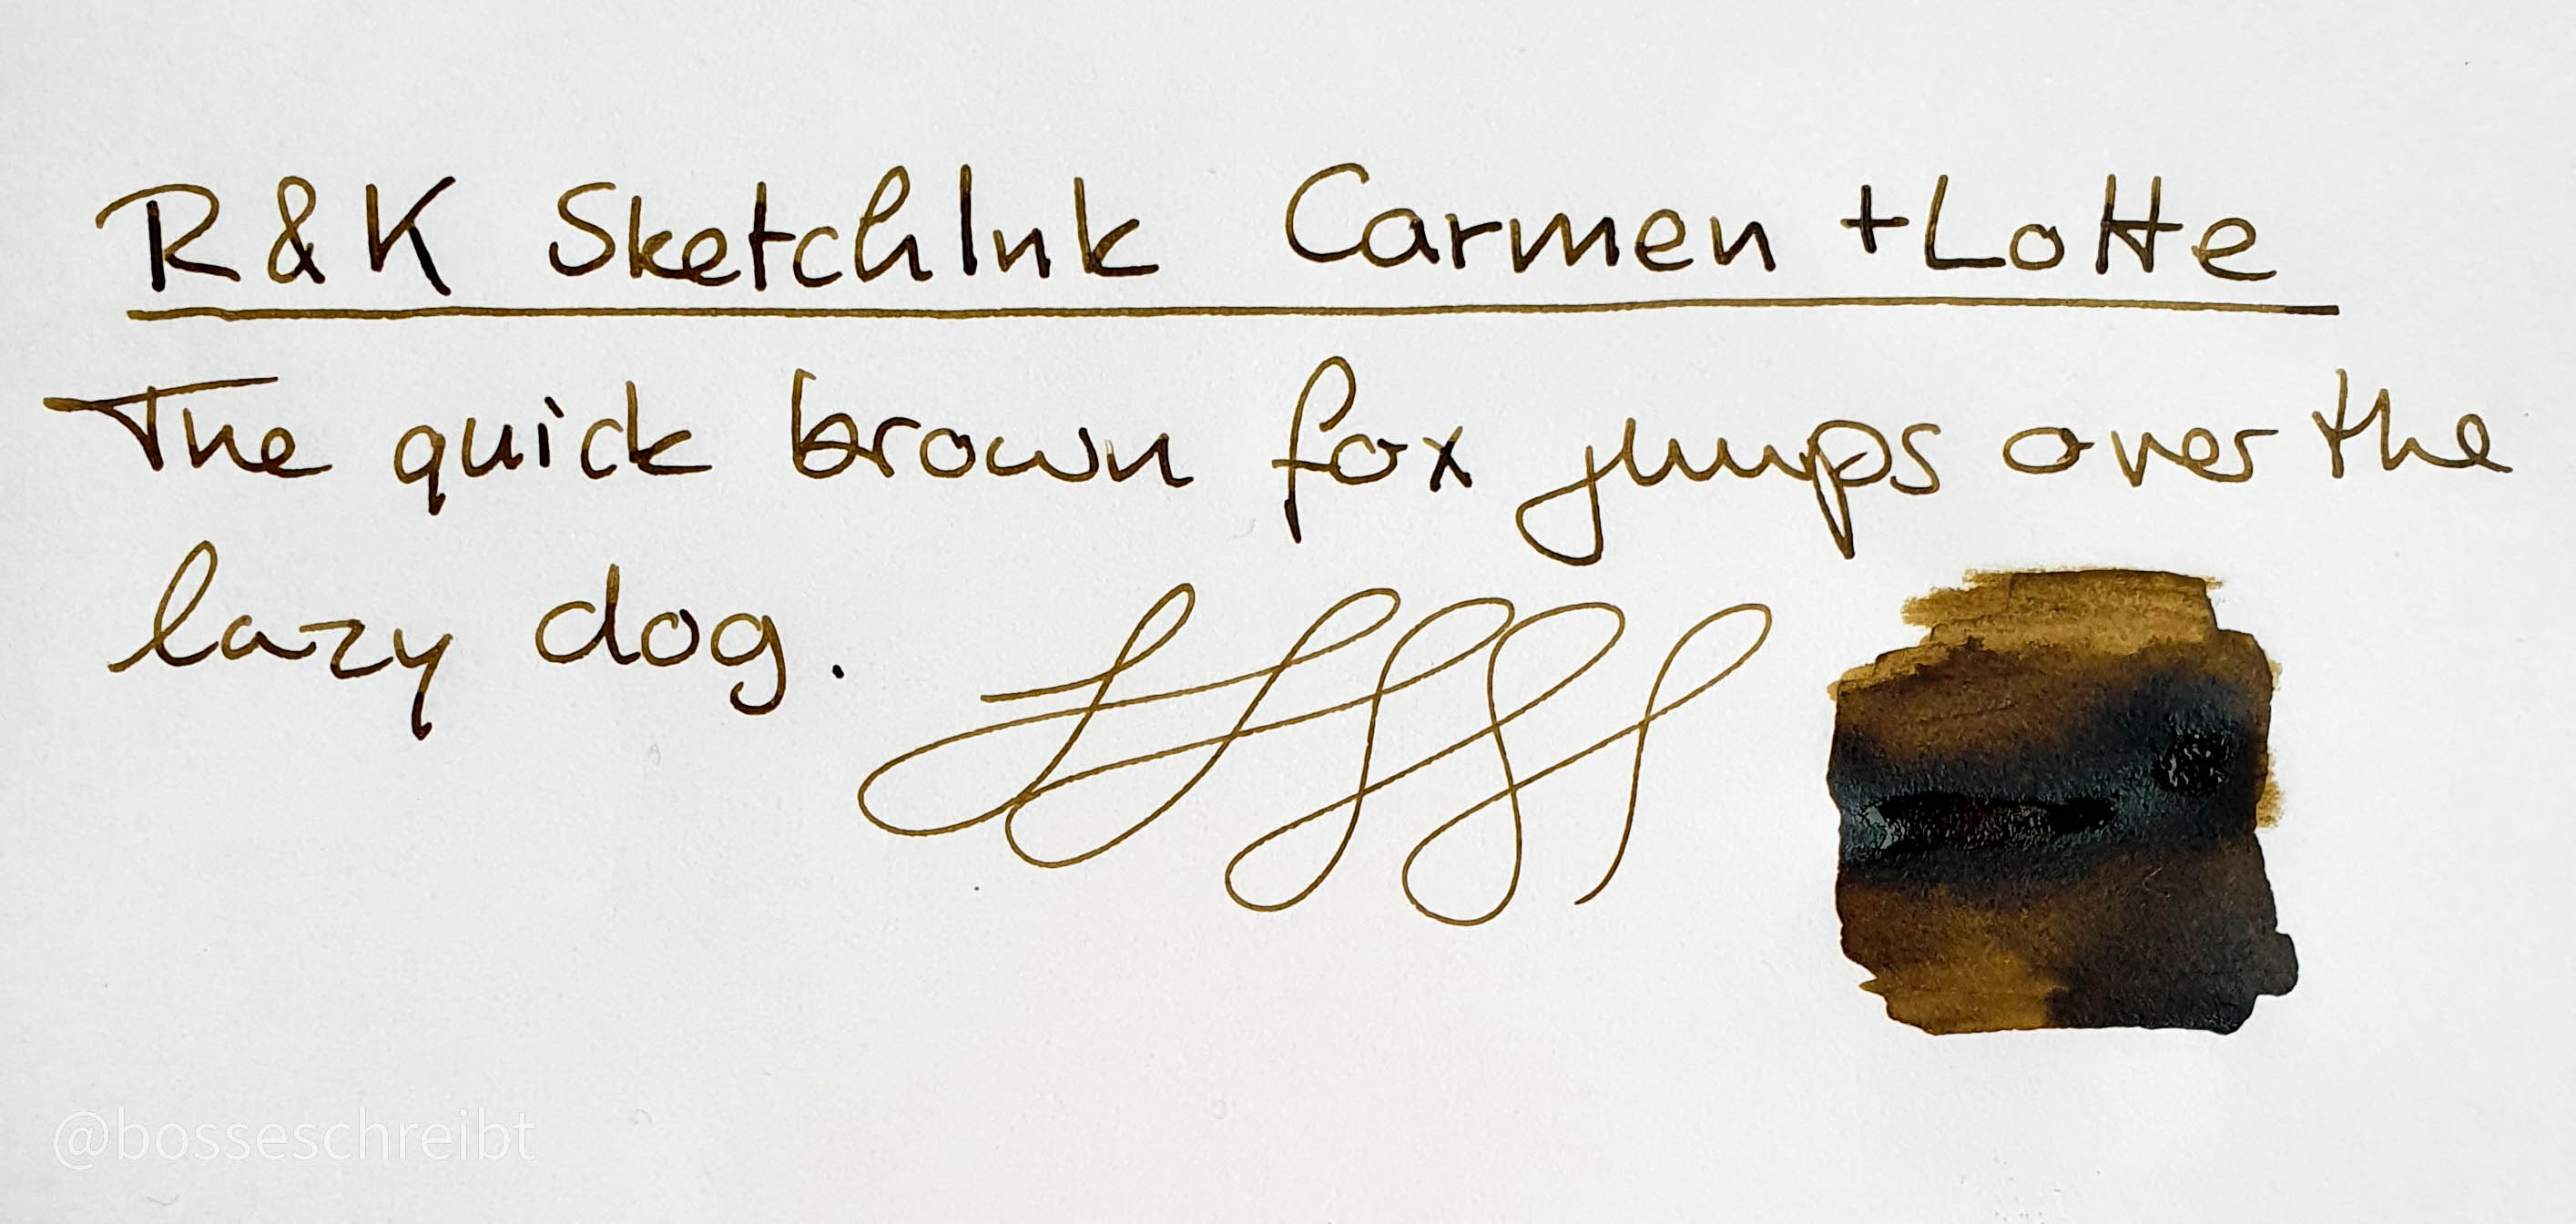 R&K SketchInk Carmen + Lotte
The quick brown fox jumps over the
lazy dog.
@bosseschreibt